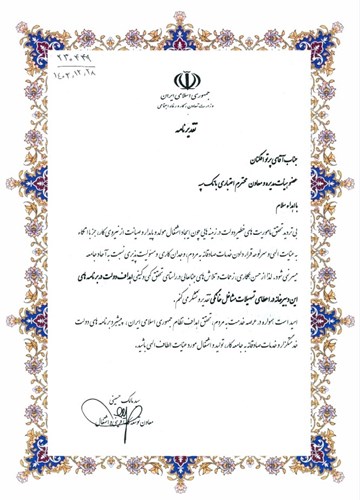 ۲۳۰۴۴۹
۱۴۰۲,۱۲,۱۸
جمهوری اسلامی ایران
وزارت تعاون، کار و رفاه اجتماعی
تقدیرنامه
جناب آقای پرتو افکنان
عضو هیات مدیره و معاون محترم اعتباری بانک سپه
با اهداء سلام
بی تردید تحقق ماموریت های خطیر دولت در زمینه هایی چون ایجاد اشتغال مولد و پایدار و صیانت از نیروی کار، جز با نگاه
به عنایت الهی و سرلوحه قرار دادن خدمات صادقانه به مردم، وجدان کاری و مسئولیت پذیری نسبت به آحاد جامعه
میسر نمی شود. لذا از حسن همکاری، زحمات و تلاش های جنابعالی در راستای تحقق کمی و کیفی اهداف دولت در برنامه های
این دبیرخانه در اعطای تسهیلات مشاغل خانگی تقدیر و تشکر می کنم.
امید است همواره در عرصه خدمت به مردم، تحقق اهداف نظام جمهوری اسلامی ایران، پیشبرد برنامه های دولت
خدمتگزار و خدمات صادقانه به جامعه کار، تولید و اشتغال مورد عنایت الطاف الهی باشید.
سید مالک حسینی
معاون توسعه کارآفرینی و اشتغال